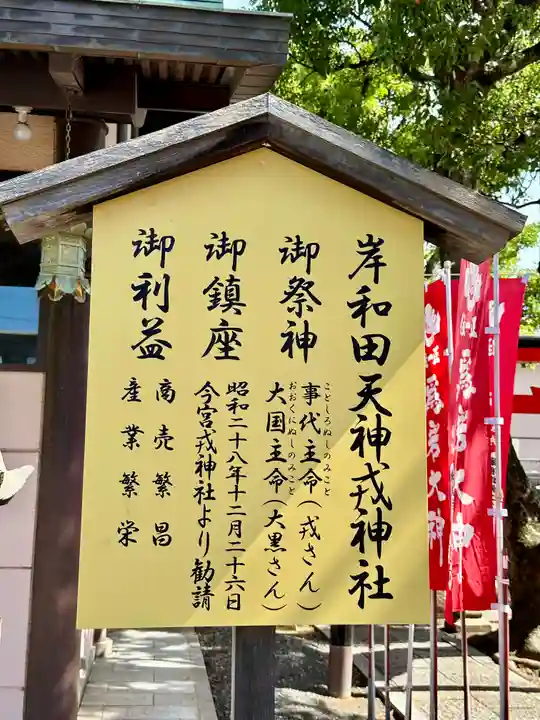 岸和田天神戎神社
御祭神
ことしろぬしのみこと
事代主命(戎さん)
おおくにぬしのみこと
大国主命(大黒さん)
御鎮座
昭和二十八年十二月二十六日
今宮戎神社より勧請
御利益
商売繁昌
産業繁栄
大神